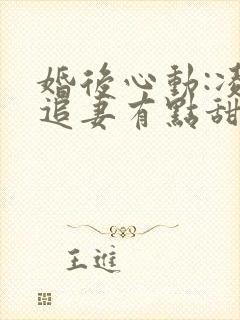 婚後心動:凌
追妻有點甜
王進